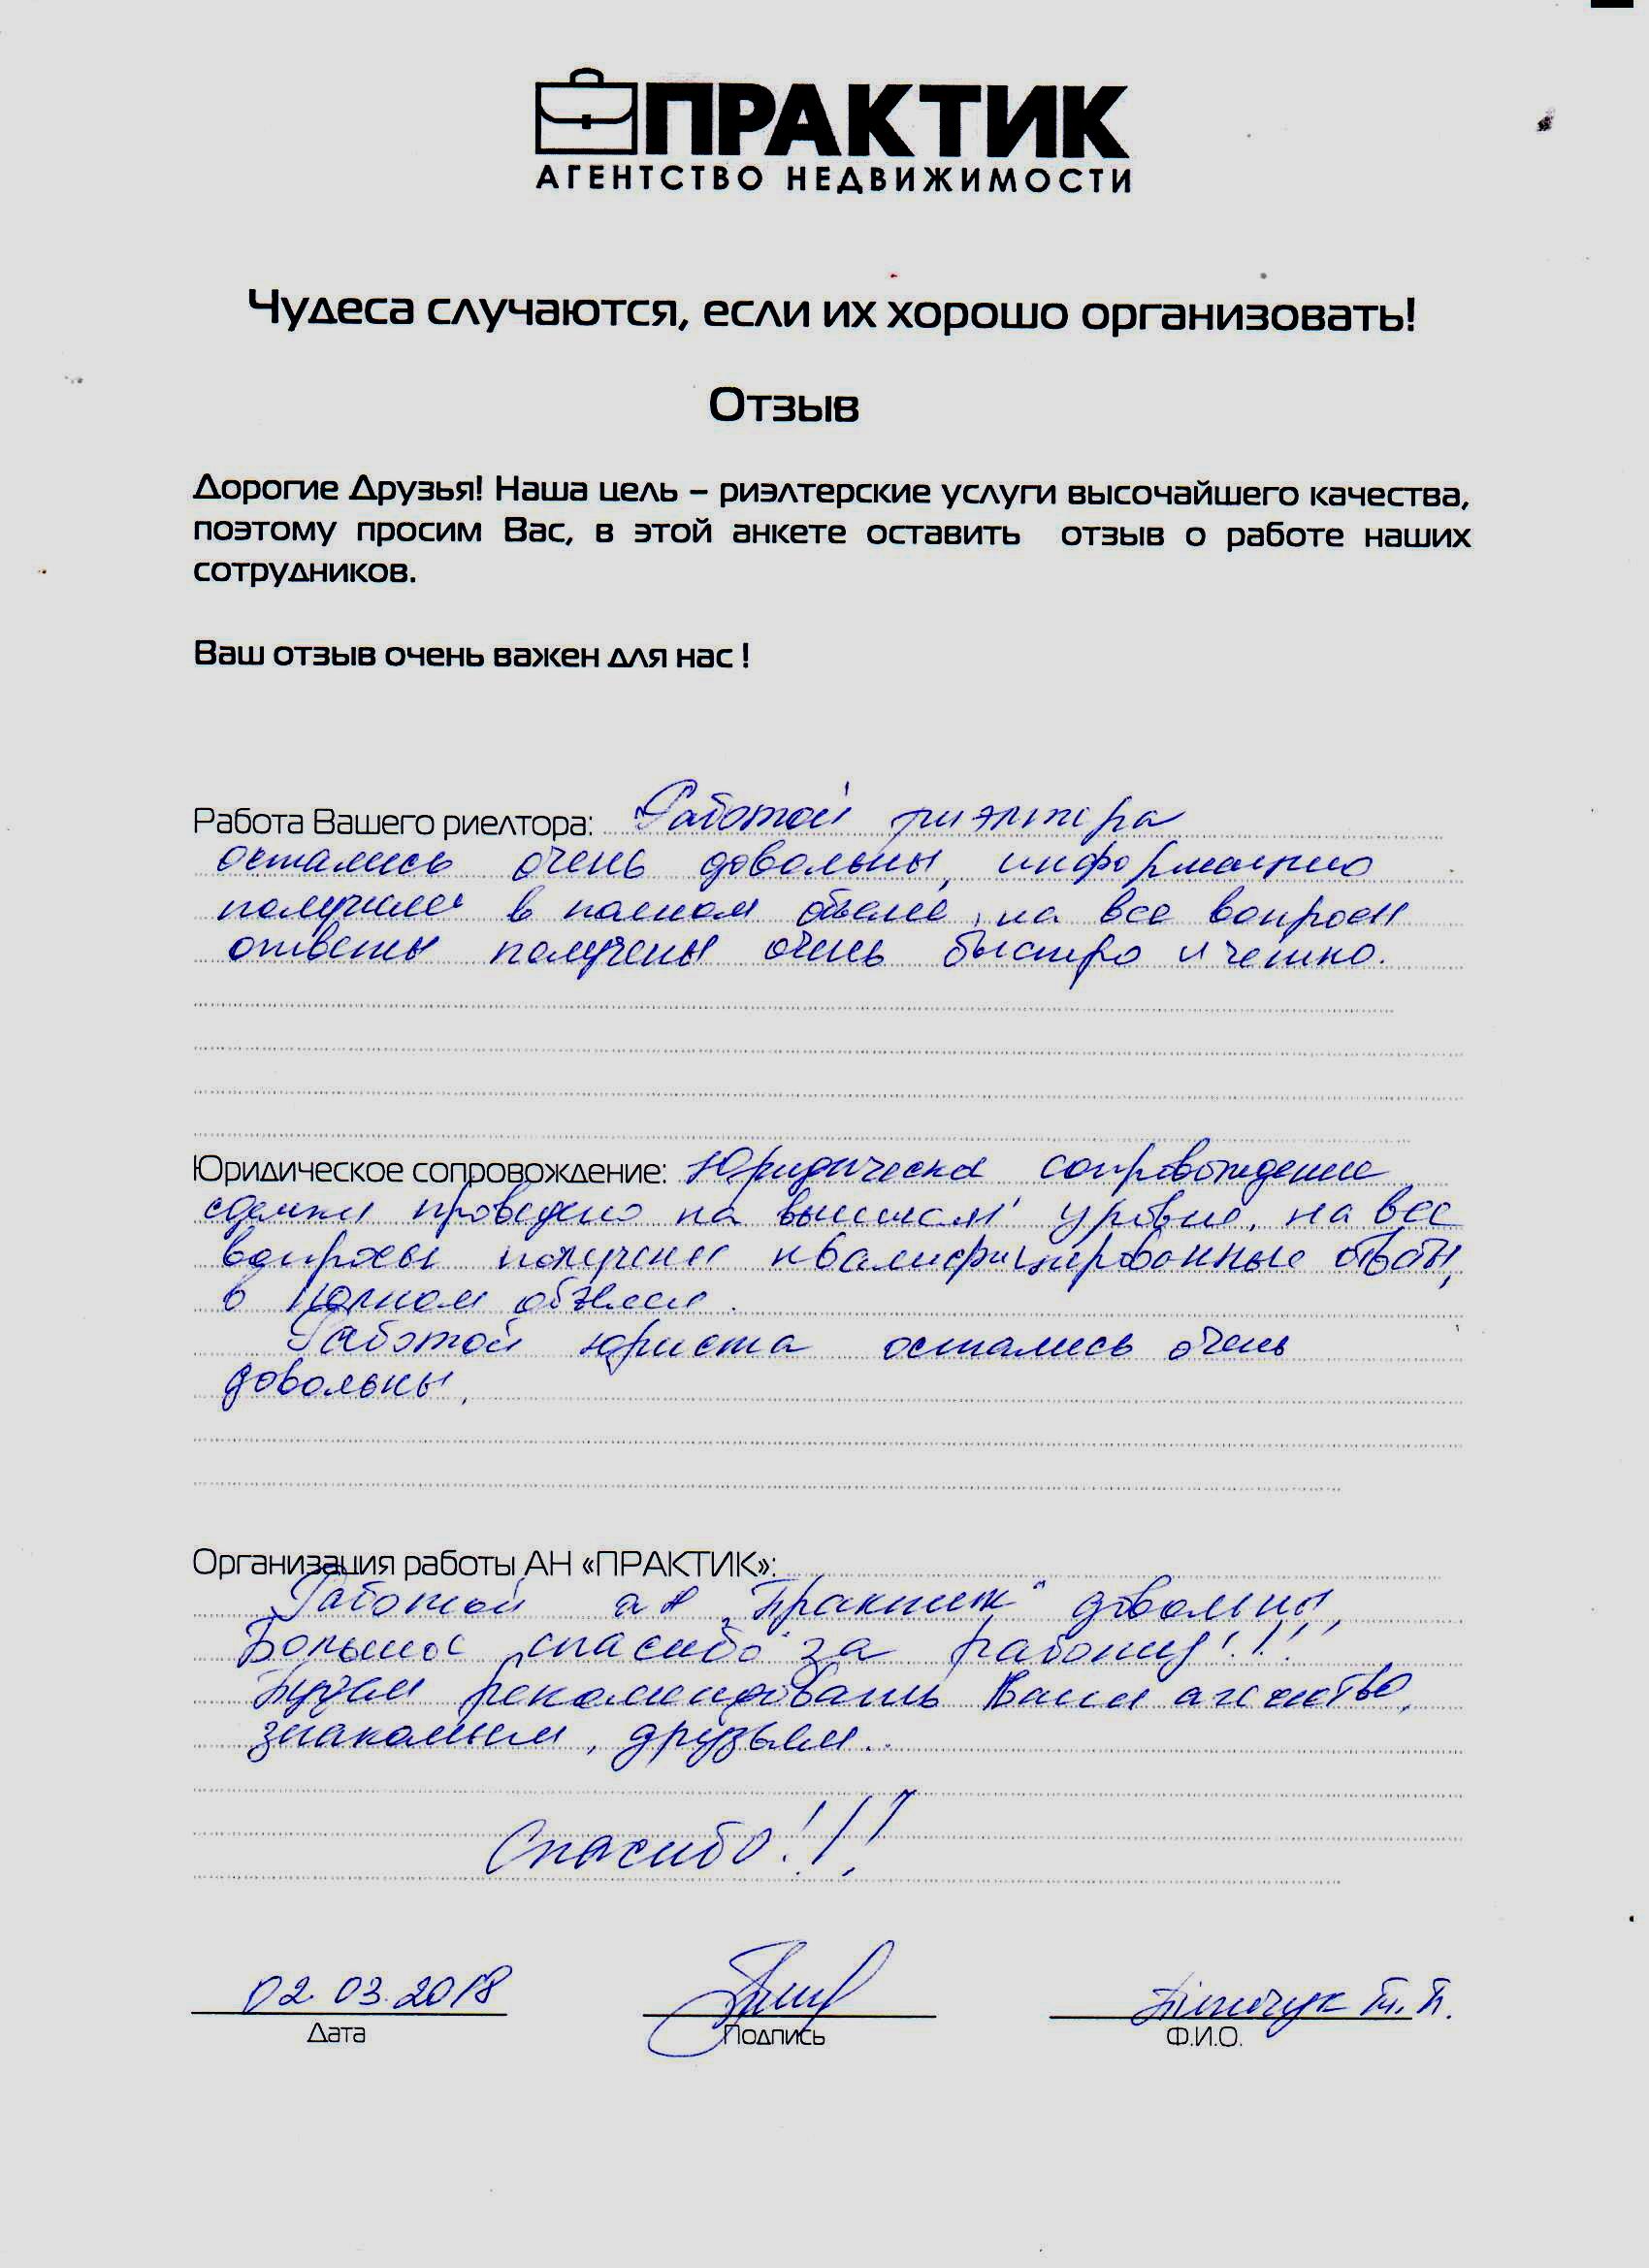 ПРАКТИК
АГЕНТСТВО НЕДВИЖИМОСТИ
Чудеса случаются, если их хорошо организовать!
Отзыв
Дорогие Друзья! Наша цель – риэлтерские услуги высочайшего качества,
поэтому просим Вас, в этой анкете оставить отзыв о работе наших
сотрудников.
Ваш отзыв очень важен для нас !
Работа Вашего риелтора: Работой риэлтора
остались очень довольны, информацию
получили в полном объеме, на все вопросы
ответы получены очень быстро и четко.
Юридическое сопровождение: Юридическое сопровождение
сделки проведено на высшем уровне, на все
вопросы получены квалифицированные ответы,
в полном объеме.
Работой юриста остались очень
довольны.
Организация работы АН «ПРАКТИК»:
Работой АН "Практик" довольны,
Большое спасибо за работу!!!
Будем рекомендовать Ваше агентство,
знакомым, друзьям..
Спасибо!!!
02.03.2018
Дата
Подпись
Т.П.
Ф.И.О.